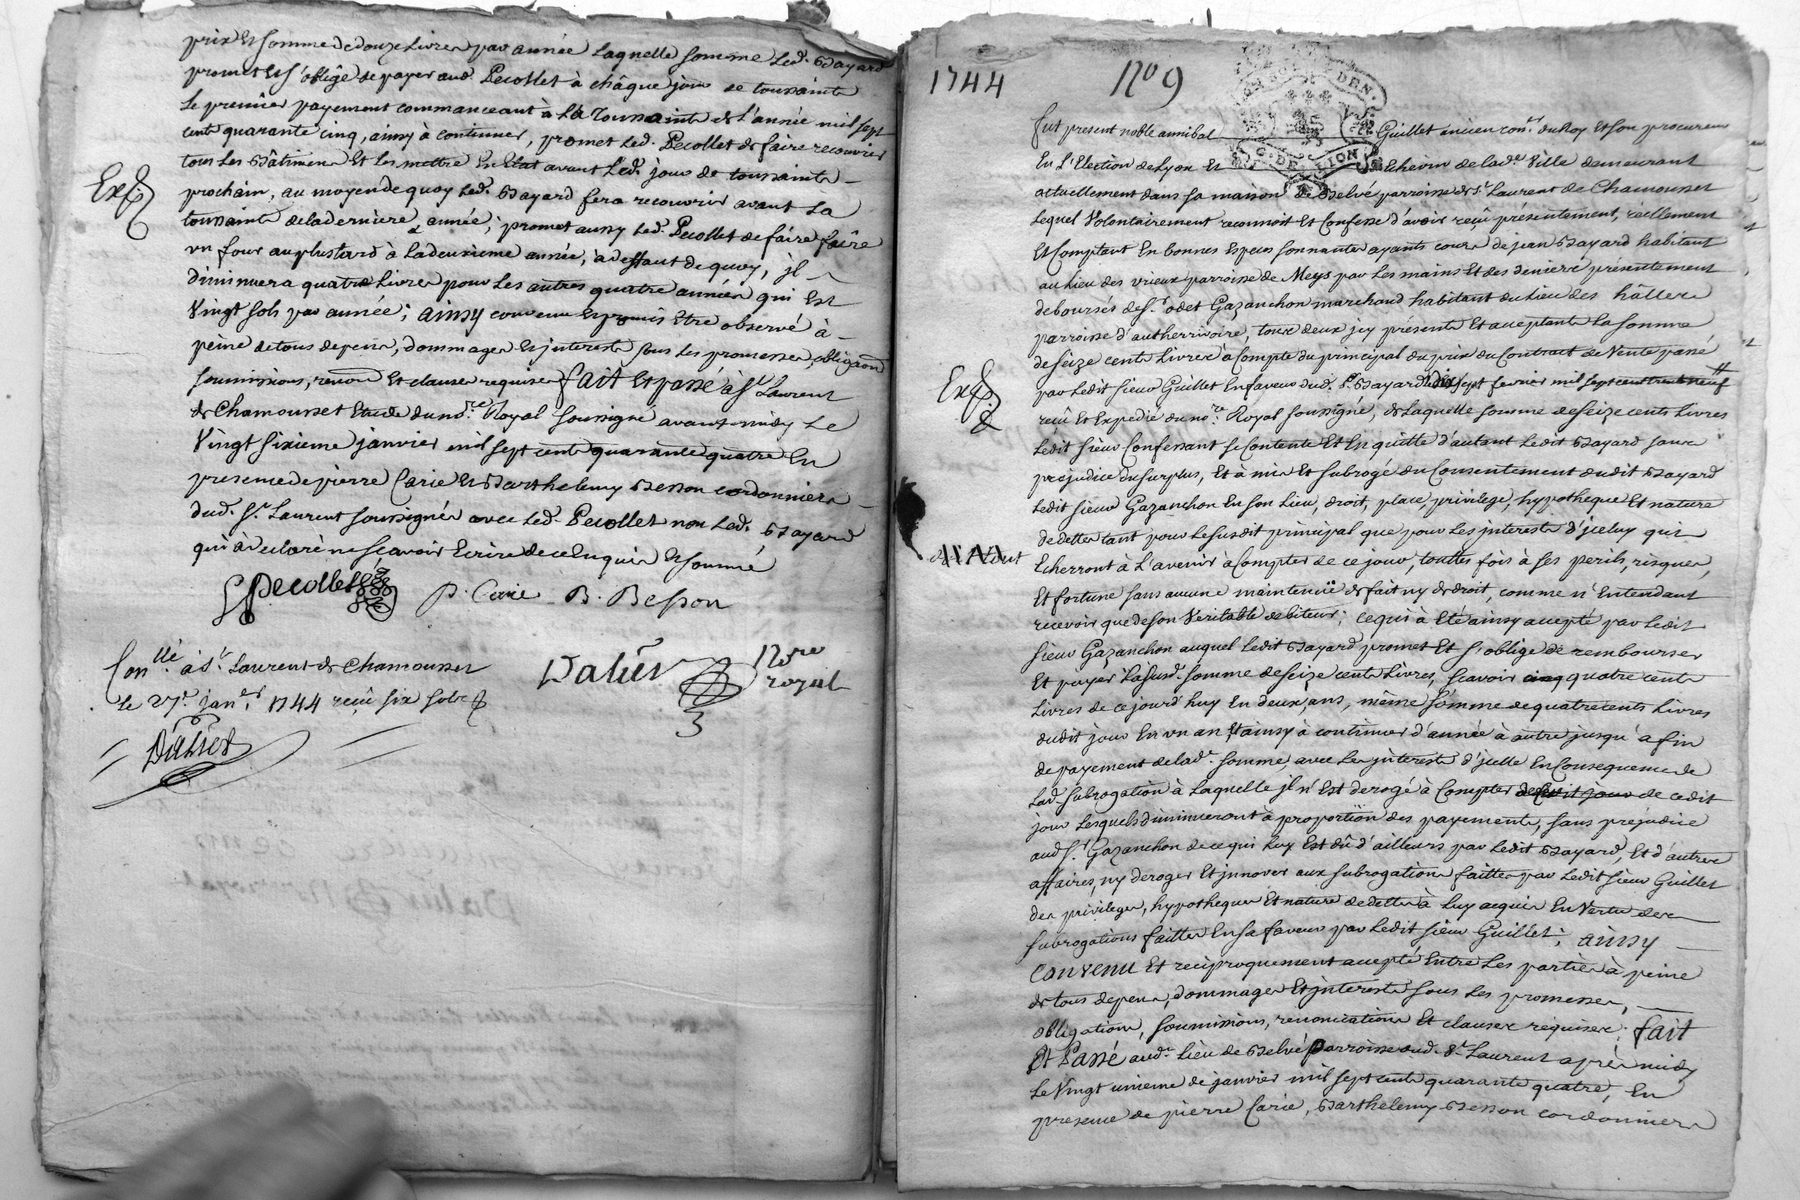 prix et somme de douze livres par année laquelle somme led. Bayard
promet et s'oblige de payer aud. Pecollet à châque jour de toussaints
Le premier payement commanceant à la Toussaints de l'année mil sept
cents quarante cinq, ainsy à continuer, promet led. Pecollet de faire recouvrir
tous les Bâtiments et les mettre en Etat avant led. jour de toussaints
prochain, au moyen de quoy led. Bayard fera recouvrir avant La
toussaints de la derniere année; promet aussy led. Pecollet de faire faire
un four au plus tard à la deuxieme année, à deffaut de quoy, il
diminuera quatre livres pour les autres quatre années qui Est
Vingt sols par année; ainsy convenu et promis Etre observé à
peine de tous depens, dommages et interests sous les promesses, obligaõns
soumissions, renonõns Et clauses requises fait et passé à St Laurent
de Chamousset Etude du nore Royal soussigné avant midy Le
Vingt sixieme janvier mil sept cents quarante quatre En
presence de pierre Carie et Barthelemy Besson cordonniers
dud. St Laurent soussignés avec led. Pecollet non led. Bayard
qui à declaré ne sçavoir Ecrire de ce enquis et sommé
Exp
Pecollet P. Carie B. Besson
Conllé à St Laurent de Chamousset
Le 27e janer 1744 reçû six sols
Dalier Nore
royal
1744 No 9
fut present noble annibal Guillet ancien conr du Roy Et son procureur
En L'Election de Lyon Et Echevin de lad. Ville demeurant
actuellement dans sa maison de Belvé parroisse de St Laurent de Chamousset
Lequel Volontairement reconnoit Et Confesse d'avoir reçû présentement, réellement
Et Comptant En bonnes Especes sonnantes ayants cours de jean Bayard habitant
au Lieu des vrieux parroisse de Meys par Les mains Et des deniers présentement
deboursés de Sr odet Gazanchon marchand habitant du Lieu des hâlles
parroisse d'autherrivoire, tous deux icy présents Et acceptants La somme
de seize cents Livres à Compte du principal du prix du Contract de Vente passé
par Ledit sieur Guillet En faveur dud. Sr Bayard Le dix sept fevrier mil sept cent trente neuf
reçû Et Expedié du nore Royal soussigné, de Laquelle somme de seize cents Livres
Ledit sieur Confessant se Contente Et En quitte d'autant Ledit Bayard sans
préjudice du surplus, Et à mis Et subrogé du Consentement dudit Bayard
Ledit sieur Gazanchon En son Lieu, droit, place, privilege, hypotheque Et nature
de dettes tant pour Le susdit principal que pour Les interests d'iceluy qui
Echerront à L'avenir à Compter de ce jour, touttes fois à ses perils, risques,
Et fortune sans aucune maintenüe de fait ny de droit, comme n'Entendant
recevoir que de son Veritable debiteur; ce qui à Eté ainsy accepté par Ledit
sieur Gazanchon auquel Ledit Bayard promet Et s'oblige de rembourser
Et payer La susd. somme de seize cents Livres, sçavoir quatre cents
Livres de ce jourd'huy En deux ans, même somme de quatre cents Livres
dudit jour En un an Et ainsy à continuer d'année à autre jusqu'à fin
de payement de lad. somme, avec Les interests d'icelle En Consequence de
Lad. subrogation à Laquelle il n'Est derogé à Compter de ce dit
jour Lesquels diminueront à proportion des payements, sans préjudice
aud. Sr Gazanchon de ce qui Luy Est dû d'ailleurs par Ledit Bayard, Et d'autres
affaires, ny deroger Et innover aux subrogations faittes par Ledit sieur Guillet
des privileges, hypotheques Et nature de dettes à Luy acquis En Vertu des
subrogations faittes En sa faveur par Ledit sieur Guillet; ainsy
Convenu Et réciproquement accepté Entre Les parties à peine
de tous depens, dommages Et interests sous Les promesses,
obligations, soumissions, renonciations Et clauses requises. fait
Et Passé aud. Lieu de Belvé parroisse aud. St Laurent après midy
Le Vingt unieme de janvier mil sept cents quarante quatre, En
presence de pierre Carie, Barthelemy Besson cordonniers
Exp